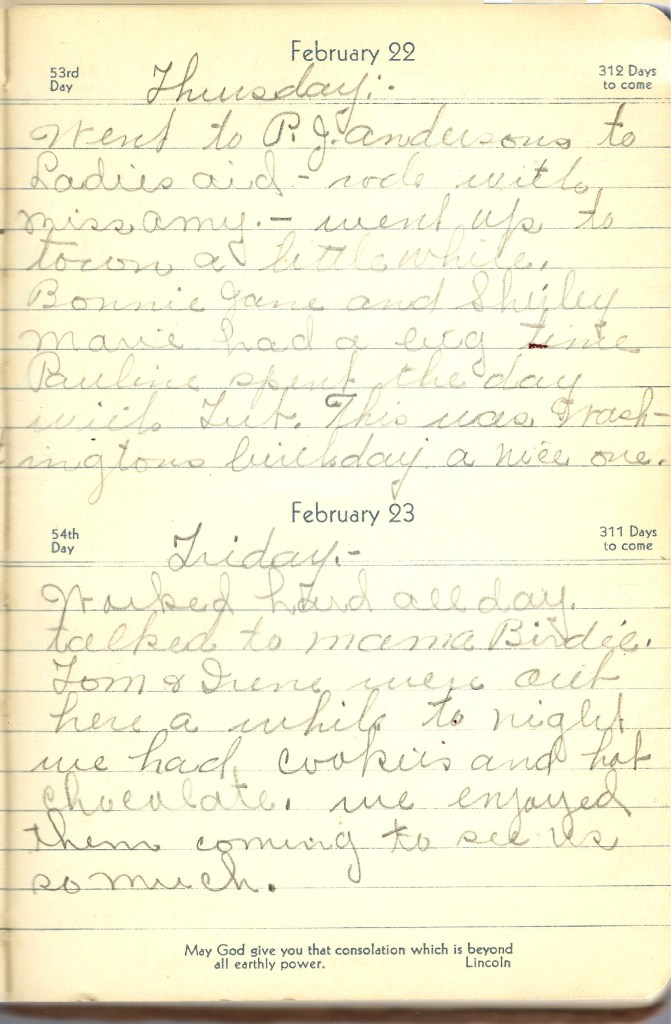 February 22
53rd
Day
312 Days
to come
Thursday:-
Went to P. J. andersons to
Ladies aid - rode with
miss amy. - went up to
town a little while.
Bonnie Jane and Shirley
Marie had a big time
Pauline spent the day
with Tut. This was Wash-
ingtons birthday a nice one.
February 23
54th
Day
311 Days
to come
Friday.-
Worked hard all day.
talked to mama Birdie.
Tom & Irene were out
here a while to night
we had cookies and hot
chocolate. we enjoyed
them coming to see us
so much.
May God give you that consolation which is beyond
all earthly power. Lincoln